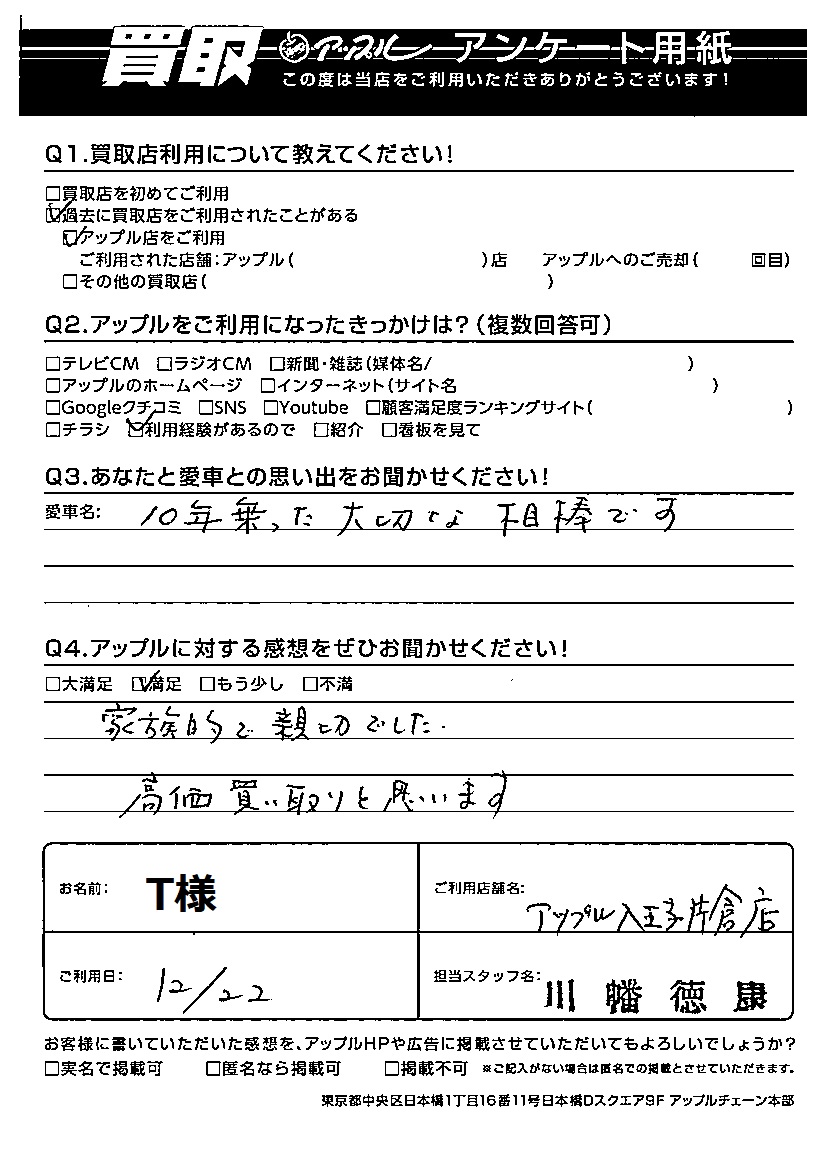 買取 アップル アンケート用紙
この度は当店をご利用いただきありがとうございます!
Q1.買取店利用について教えてください!
□買取店を初めてご利用
☑過去に買取店をご利用されたことがある
☑アップル店をご利用
ご利用された店舗:アップル( )店 アップルへのご売却( 回目)
□その他の買取店( )
Q2.アップルをご利用になったきっかけは?(複数回答可)
□テレビCM □ラジオCM □新聞・雑誌(媒体名/ )
□アップルのホームページ □インターネット(サイト名 )
□Googleクチコミ □SNS □Youtube □顧客満足度ランキングサイト( )
□チラシ ☑利用経験があるので □紹介 □看板を見て
Q3.あなたと愛車との思い出をお聞かせください!
愛車名: 10年乗った大切な相棒です
Q4.アップルに対する感想をぜひお聞かせください!
□大満足 ☑満足 □もう少し □不満
家族的で親切でした.
高価買い取りと思います
お名前: T様 ご利用店舗名: アップル八王子片倉店
ご利用日: 12/22 担当スタッフ名: 川幡 徳康
お客様に書いていただいた感想を、アップルHPや広告に掲載させていただいてもよろしいでしょうか?
□実名で掲載可 □匿名なら掲載可 □掲載不可 ※ご記入がない場合は匿名での掲載とさせていただきます。
東京都中央区日本橋1丁目16番11号日本橋Dスクエア9F アップルチェーン本部